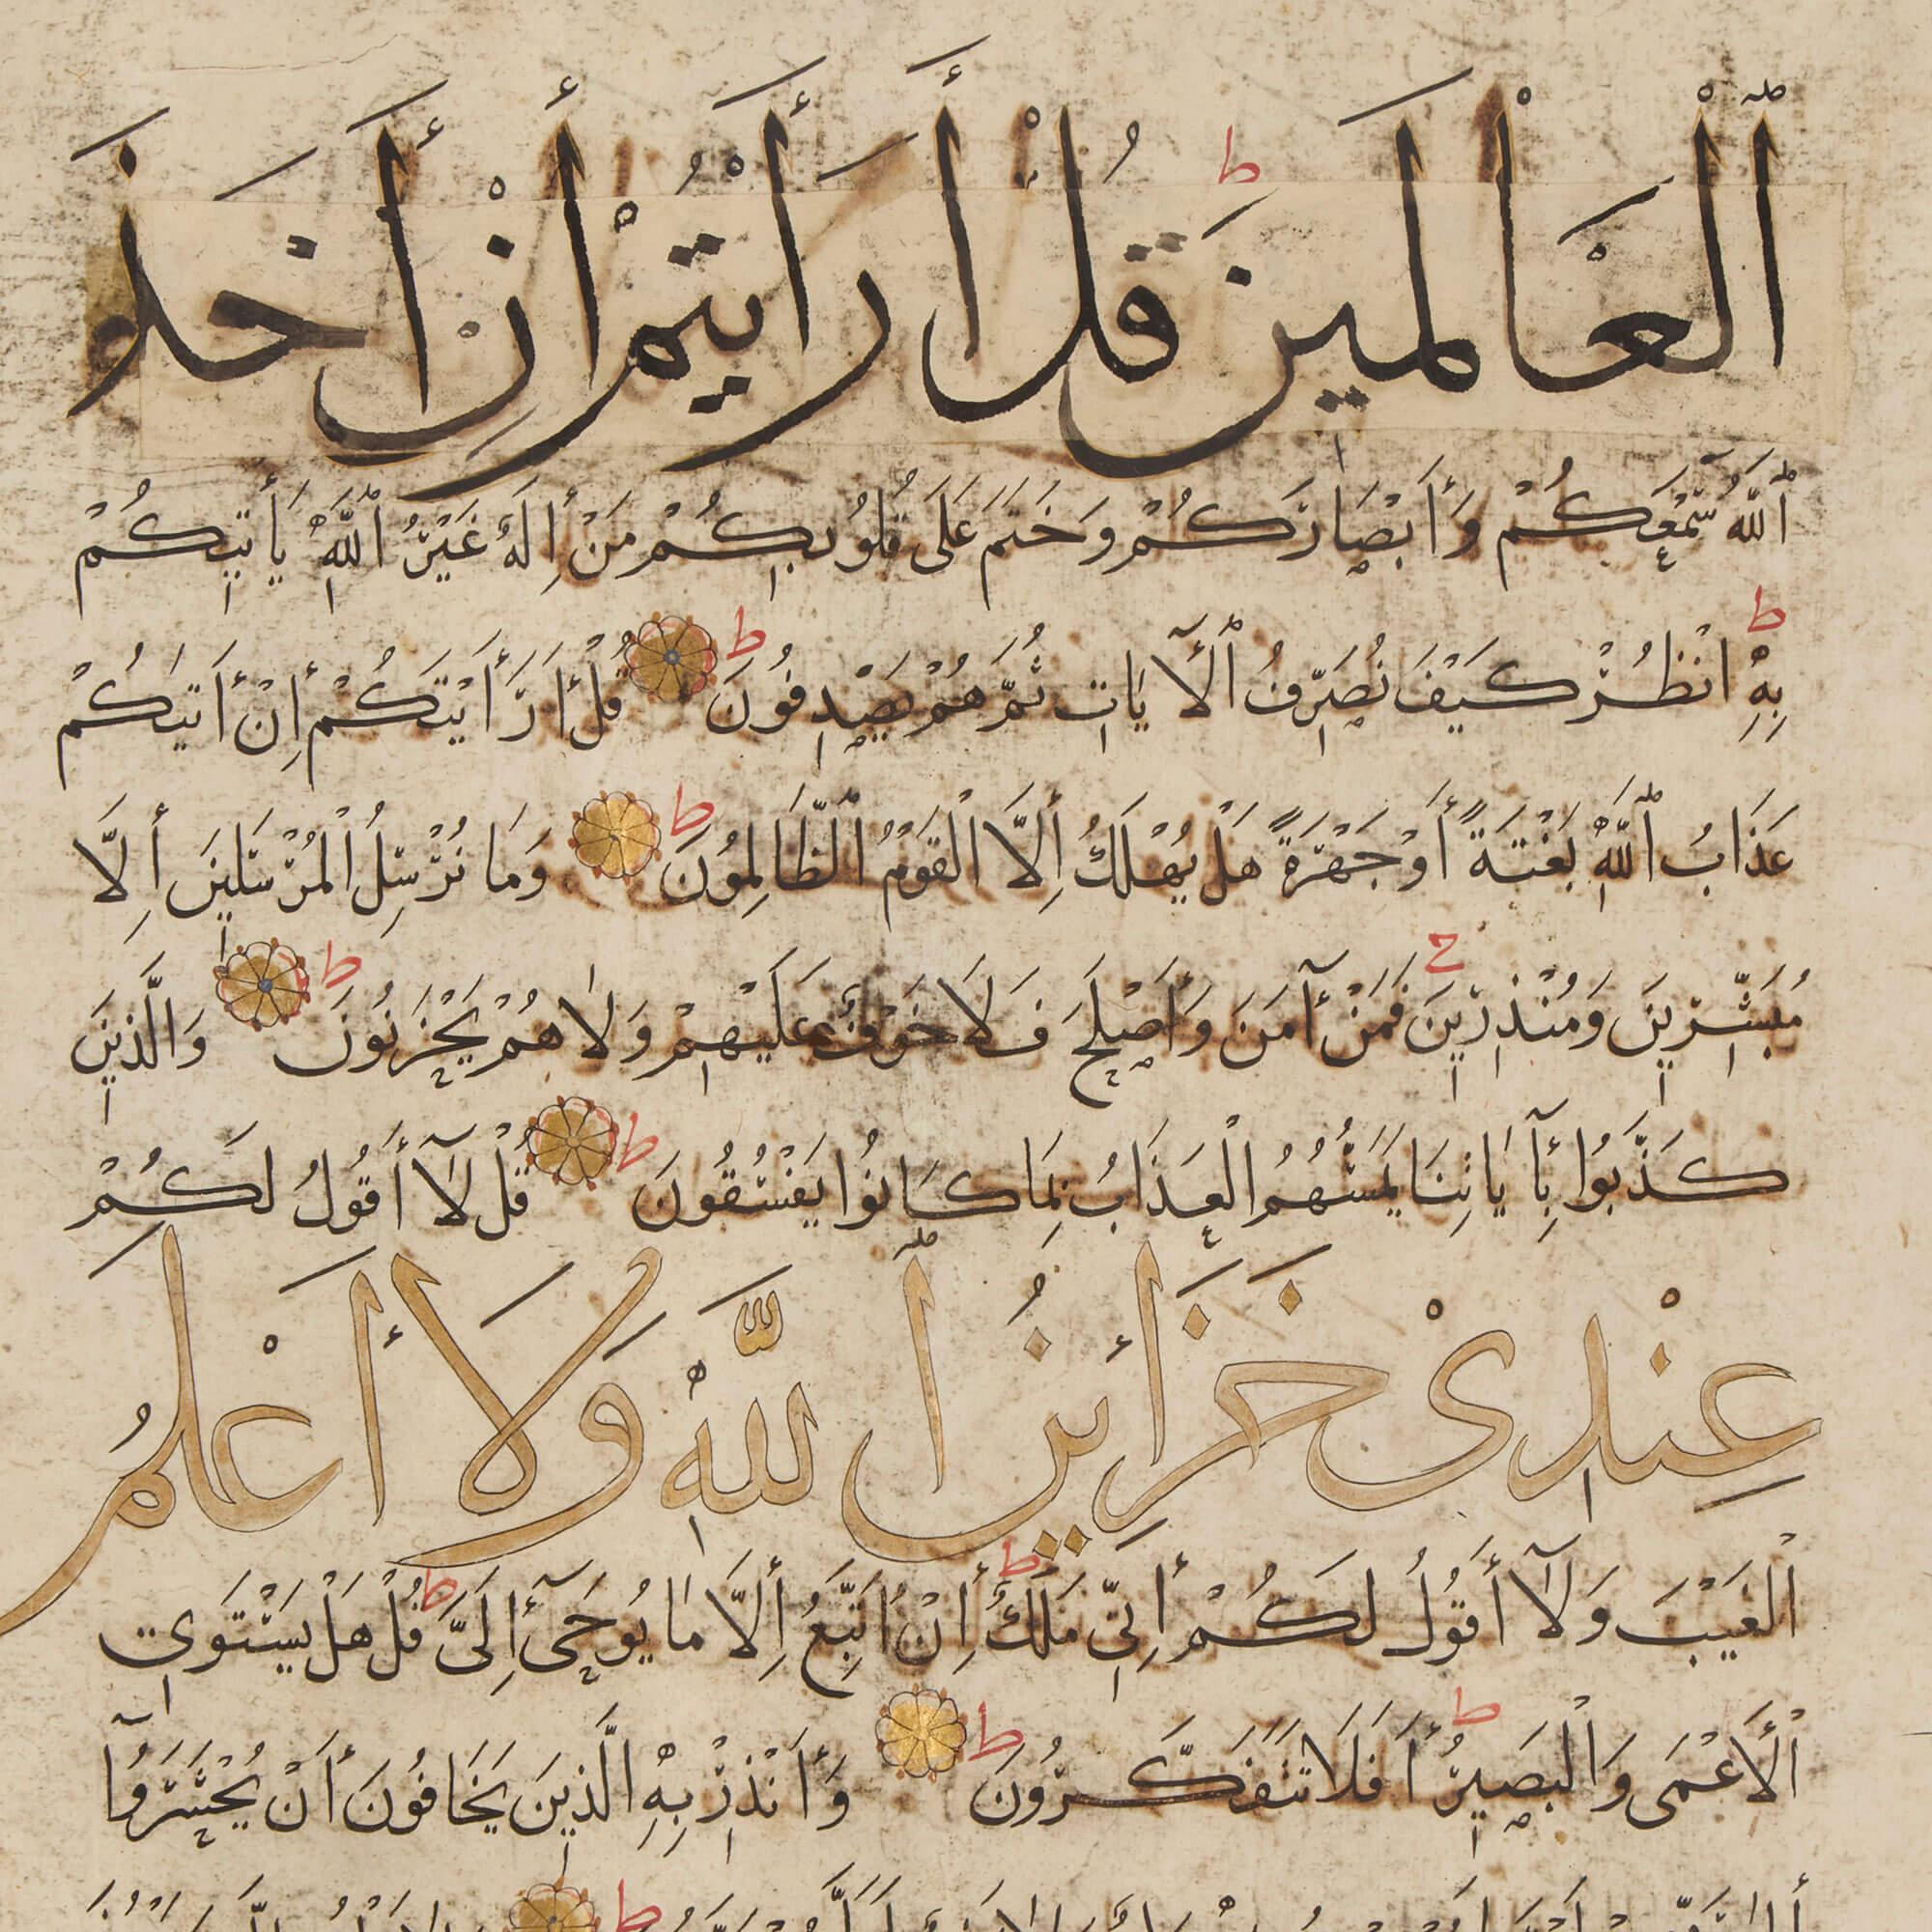 ٱلْعَالَمِينَ ط قُلْ أَرَأَيْتُمْ أَنْ أَخَذَ
ٱللَّهُ سَمْعَكُمْ وَأَبْصَارَكُمْ وَخَتَمَ عَلَى قُلُوبِكُمْ مَنْ إِلَهٌ غَيْرُ ٱللَّهِ يَأْتِيكُمْ
بِهِ ط انْظُرْ كَيْفَ نُصَرِّفُ ٱلْآيَاتِ ثُمَّ هُمْ يَصْدِفُونَ ط قُلْ أَرَأَيْتَكُمْ إِنْ أَتَيٰكُمْ
عَذَابُ ٱللَّهِ بَغْتَةً أَوْ جَهْرَةً هَلْ يُهْلَكُ إِلَّا الْقَوْمُ ٱلظَّالِمُونَ ط وَمَا نُرْسِلُ الْمُرْسَلِينَ إِلَّا
مُبَشِّرِينَ وَمُنْذِرِينَ ج فَمَنْ آمَنَ وَأَصْلَحَ فَلَا خَوْفٌ عَلَيْهِمْ وَلَا هُمْ يَحْزَنُونَ ط وَالَّذِينَ
كَذَّبُوا بِآيَاتِنَا يَمَسُّهُمُ الْعَذَابُ بِمَا كَانُوا يَفْسُقُونَ ط قُلْ لَآ أَقُولُ لَكُمْ
عِنْدِىْ خَزَائِنُ ٱللَّهِ وَلَا أَعْلَمُ
الْغَيْبَ وَلَآ أَقُولُ لَكُمْ إِنِّي مَلَكٌ ط إِنْ اَتَّبِعُ إِلَّا مَا يُوحَىٓ إِلَىَّ ط قُلْ هَلْ يَسْتَوِي
الْأَعْمَى وَالْبَصِيرُ ط أَفَلَا تَتَفَكَّرُونَ ط وَأَنْذِرْ بِهِ الَّذِينَ يَخَافُونَ أَنْ يُحْشَرُوآ